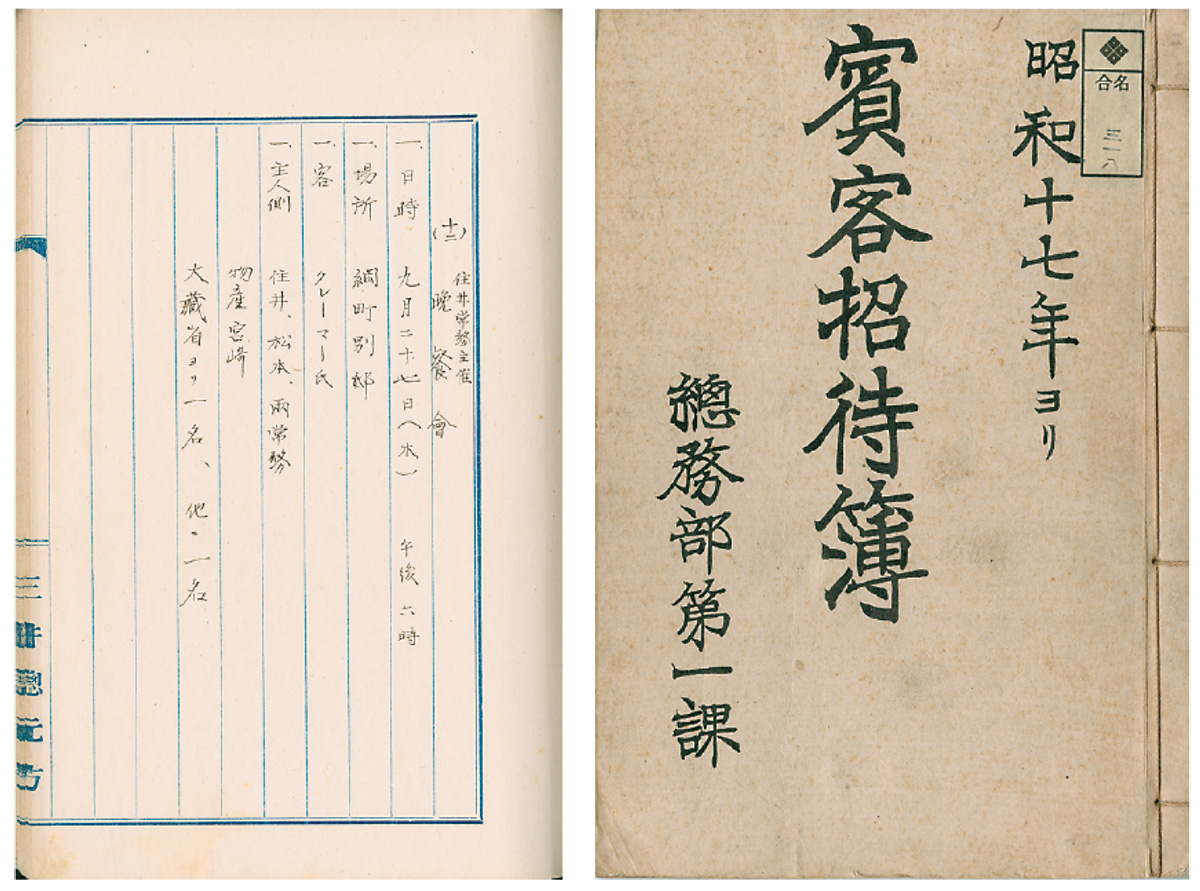 合名
三一八
昭和十七年ヨリ
賓客招待簿
總務部第一課
住井常務主催
(十二) 晩餐會
一、日時 九月二十七日(木) 午後六時
一、場所 綱町別邸
一、客 クレーマー氏
一、主人側 住井、松本、両常務
物産宮崎
大藏省ヨリ一名、他ニ一名
三井總元方